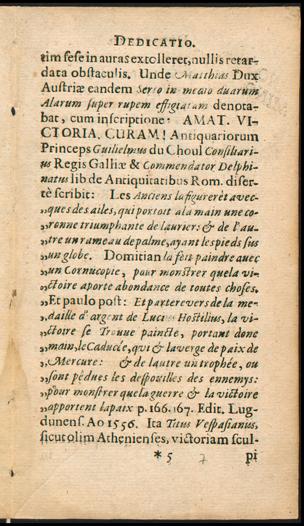 DEDICATIO.
tim sese in auras extolleret, nullis retar-
data obstaculis. Unde Matthias Dux
Austriæ eandem Serto in medio duarum
Alarum super rupem effigiatam denota-
bat, cum inscriptione: AMAT. VI-
CTORIA. CURAM! Antiquariorum
Princeps Guilielmus du Choul Consiliari-
us Regis Galliæ & Commendator Delphi-
natus lib de Antiquitatibus Rom. diser-
tè scribit: Les Anciens la figurerēt avec-
„ques des ailes, qui portoit a la main une co-
„ronne triumphante de laurier: & de l'au-
„tre un rameau de palme, ayant les pieds sus
„un globe. Domitian la feit paindre avec
„un Cornucopie, pour monstrer que la vi-
„ctoire aporte abondance de toutes choses.
„Et paulo post: Et par le revers de la me-
„daille d' argent de Luci Hostilius, la vi-
„ctoire se Trouue paincte, portant done
„main, le Caducée, qvi & la verge de paix de
„Mercure: & de lautre un trophée, ou
„sont pēdues les despovilles des ennemys:
„pour monstrer que la guerre & la victoire
„apportent la paix p. 166. 167. Edit. Lug-
dunens. Ao 1556. Ita Titus Vespasianus,
sicut olim Athenienses, victoriam scul-
* 5 7 pi